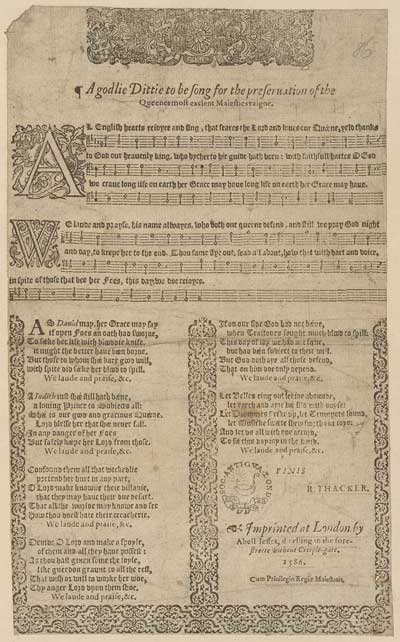 ¶ A godlie Dittie to be song for the preseruation of the
Queenes most exclent Maiesties raigne.
AL English hearts reioyce and sing, that feares the Lord and loues our Quæne, yeld thanks
to God our heauenly king, who hytherto hir guide hath been: with faithfull hartes O God
we craue long life on earth her Grace may haue long life on earth her Grace may haue.
WE laude and prayse, his name alwayes, who doth our queene defend, and still we pray God night
and day, to keepe her to the end. Thou same spread about, with hart and voice,
in spite of those that bee her foes, this day we doe reioyce.
AS Dauid may, her Grace may say
if open Foes an oath had swoyne,
To seeke her life with bloodie knife,
it might the better haue been borne.
But those to whom she bare good will,
with spite did seeke her blood to spill.
We laude and praise, &c.
A Iudith and she still hath bene,
a louing Prince to subiects all:
This is our good and gracious Queene,
Lord blesse her that she neuer fall.
In any danger of her Foes
But safely keepe her Lord from those.
We laude and praise, &c.
Confound them all that wickedlie
pretend her hurt in any part,
O Lord make knowne their villanie,
that they may haue their due desert.
That all the worlde may knowe and see
How thou doest hate their treacherie.
We laude and praise, &c.
Deuide O Lord and make a spoyle,
of them and all they haue possest:
As thou hast giuen some the foyle,
like guerdon graunt to all the rest,
That wish or will to worke her woe,
Thy anger Lord vpon them shoe,
We laude and praise, &c.
If on our side God had not bene,
when Traitours sought much blood to spill:
This day of ioy we had not seene,
but had been subiect to their will.
But God doth aye all those defend,
That on him doe only depend.
We laude and praise, &c.
Let Belles ring out let ioy abounde,
let earth and ayre be fild with noyse:
Let Drommes strike vp, let Trumpets sound,
let Musicke sweete they for their toyes:
And let vs all with one accord,
To sing this day in the Lord.
We laude and praise, &c.
FINIS
R. THACKER.
Imprinted at London by
Abell Ieffes, dwelling in the fore-
streete without Creeple-gate,
1586.
Cum Priuilegio Regiæ Maiestatis.